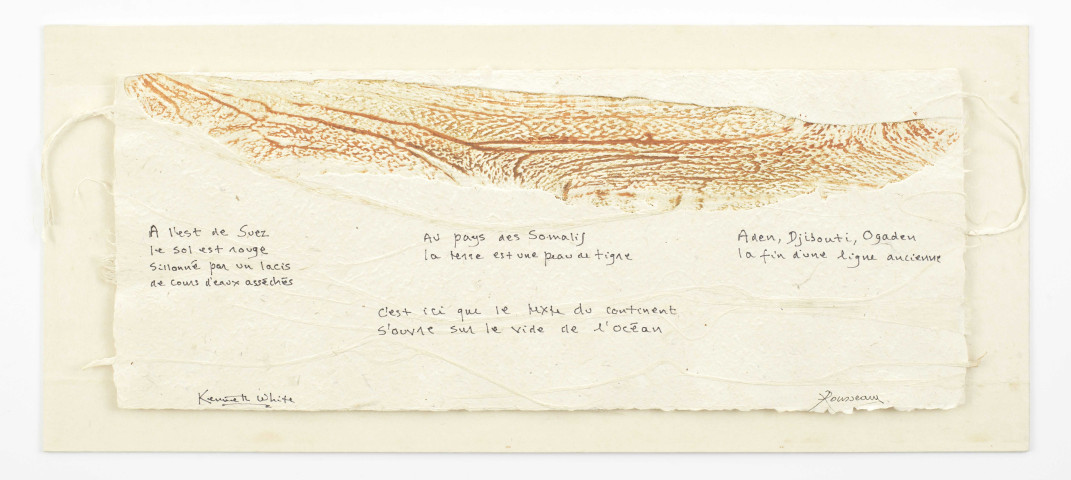 A l'est de Suez
le sol est rouge
sillonné par un lacis
de cours d'eaux asséchés
Au pays des Somalis
la terre est une peau de tigre
Aden, Djibouti, Ogaden
la fin d'une ligne ancienne
c'est ici que le texte du continent
s'ouvre sur le vide de l'océan
Kenneth White
Rousseau